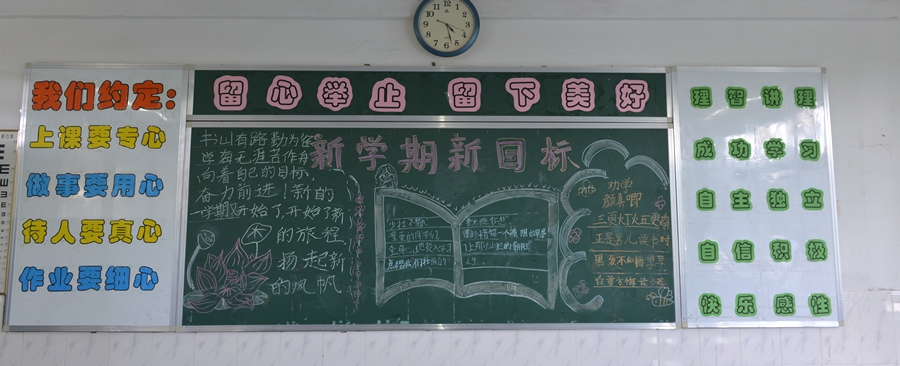 我们约定:
上课要专心
做事要用心
待人要真心
作业要细心
留心举止 留下美好
新学期新目标
书山有路勤为径
学海无涯苦作舟
向着自己的目标,
奋力前进!新的
一学期又开始了,开始了新
的旅程,
扬起新
的风帆
劝学
颜真卿
三更灯火五更鸡
正是男儿读书时
黑发不知勤学早
白首方悔读书迟
理智讲理
成功学习
自主独立
自信积极
快乐感性